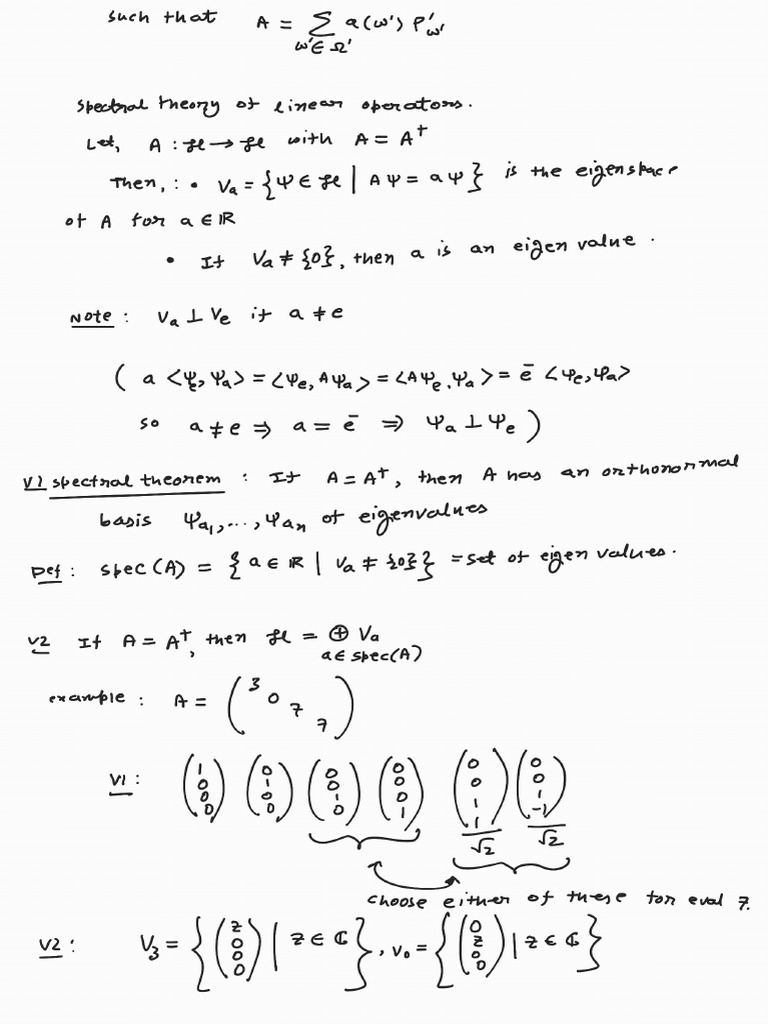 such that A = ∑_{ω'∈Ω'} a(ω') P'_{ω'}
Spectral theory of linear operators.
Let, A : ℋ → ℋ with A = A†
Then, : • V_a = {Ψ ∈ ℋ | AΨ = aΨ} is the eigenspace
of A for a ∈ ℝ
• If V_a ≠ {0}, then a is an eigen value.
Note: V_a ⊥ V_e if a ≠ e
( a <Ψ_e, Ψ_a> = <Ψ_e, AΨ_a> = <AΨ_e, Ψ_a> = ē <Ψ_e, Ψ_a>
so a ≠ e ⇒ a = ē ⇒ Ψ_a ⊥ Ψ_e )
V1 spectral theorem : If A = A†, then A has an orthonormal
basis Ψ_{a_1}, ..., Ψ_{a_n} of eigenvalues
Def: spec(A) = {a ∈ ℝ | V_a ≠ {0}} = set of eigen values.
V2 If A = A†, then ℋ = ⊕_{a∈spec(A)} V_a
example : A = (3 0 7 7)
V1: (1 0 0 0) (0 1 0 0) (0 0 1 0) (0 0 0 1) (0 0 1 1)/√2 (0 0 1 -1)/√2
choose either of these for eval 7.
V2: V_3 = {(z 0 0 0) | z ∈ ℂ}, V_0 = {(0 z 0 0) | z ∈ ℂ}